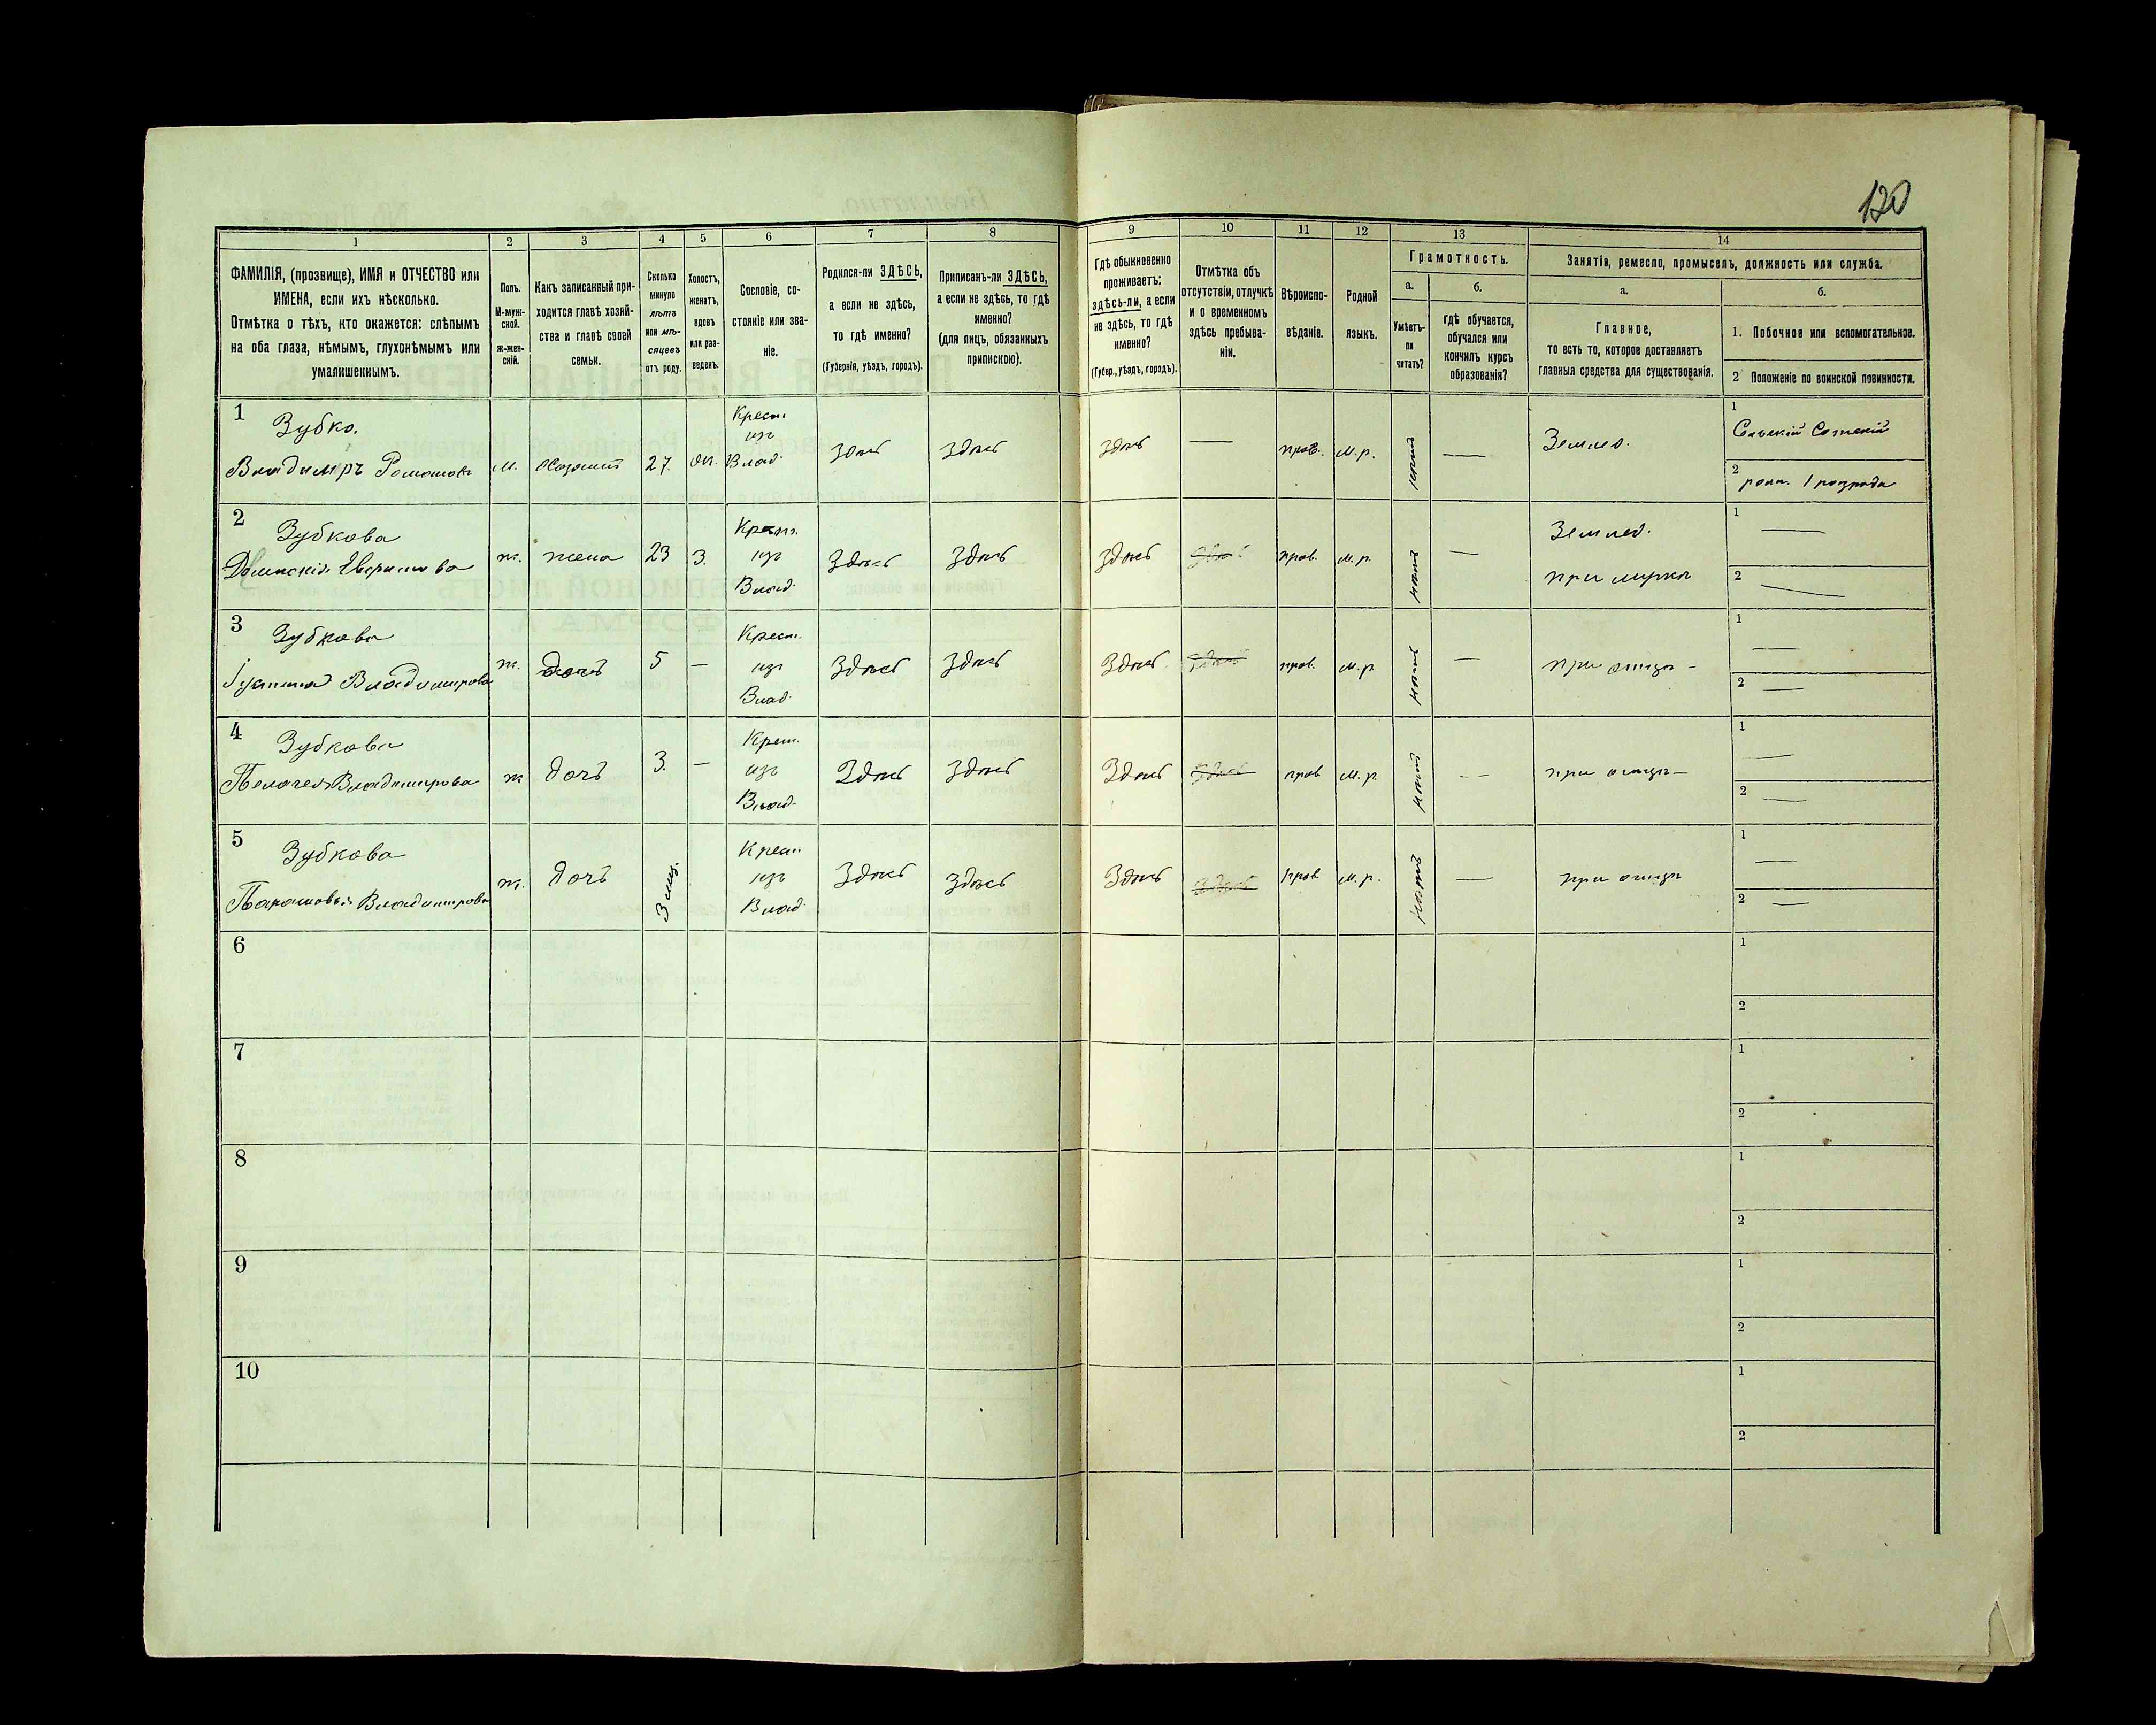 120
1
2
3
4
5
6
7
8
9
10
11
12
13
14
ФАМИЛІЯ, (прозвище), ИМЯ и ОТЧЕСТВО или
ИМЕНА, если ихъ нѣсколько.
Отмѣтка о тѣхъ, кто окажется: слѣпымъ
на оба глаза, нѣмымъ, глухонѣмымъ или
умалишеннымъ.
Полъ.
М-муж-
ской.
Ж-жен-
скій.
Какъ записанный при-
ходится главѣ хозяй-
ства и главѣ своей
семьи.
Сколько
минуло
лѣтъ
или мѣ-
сяцевъ
отъ роду.
Холостъ,
женатъ,
вдовъ
или раз-
веденъ.
Сословіе, со-
стояніе или зва-
ніе.
Родился-ли ЗДѢСЬ,
а если не здѣсь,
то гдѣ именно?
(Губернія, уѣздъ, городъ).
Приписанъ-ли ЗДѢСЬ,
а если не здѣсь, то гдѣ
именно?
(для лицъ, обязанныхъ
припискою).
Гдѣ обыкновенно
проживаетъ:
здѣсь-ли, а если
не здѣсь, то гдѣ
именно?
(Губер., уѣздъ, городъ).
Отмѣтка объ
отсутствіи, отлучкѣ
и о временномъ
здѣсь пребыва-
ніи.
Вѣроиспо-
вѣданіе.
Родной
языкъ.
Грамотность.
а.
б.
Умѣетъ-
ли
читать?
гдѣ обучается,
обучался или
кончилъ курсъ
образованія?
Занятіе, ремесло, промыселъ, должность или служба.
а.
б.
Главное,
то есть то, которое доставляетъ
главныя средства для существованія.
1. Побочное или вспомогательное.
2 Положеніе по воинской повинности.
1
Зубко.
Владимръ Романовъ
м.
Хозяинъ
27.
жн.
Крест.
изъ
Влад.
здѣсь
здѣсь
здѣсь
—
прав.
м.р.
нѣтъ
—
Землед.
1
Сельскій Сотскій
2
ратн. 1 разряда
2
Зубкова
ж.
жена
23
З.
Крест.
изъ
Влад.
Здѣсь
здѣсь
здѣсь
здѣсь
прав.
м.р.
нѣтъ
—
Землед.
при мужѣ
1
—
2
—
3
Зубкова
Іустина Владимирова
ж.
дочь
5
—
Крест.
изъ
Влад.
Здѣсь
здѣсь
Здѣсь
здѣсь
прав.
м.р
нѣтъ
—
при отцѣ —
1
—
2
—
4
Зубкова
Пелагея Владимирова
ж
дочь
3.
—
Крест.
изъ
Влад.
Здѣсь
здѣсь
Здѣсь
здѣсь
прав
м.р
нѣтъ
—
при отцѣ —
1
—
2
—
5
Зубкова
Парасковья Владимирова
ж.
дочь
3 мц.
Крест.
изъ
Влад.
Здѣсь
здѣсь
Здѣсь
здѣсь
прав.
м.р.
нѣтъ
—
при отцѣ
1
—
2
—
6
1
2
7
1
2
8
1
2
9
1
2
10
1
2